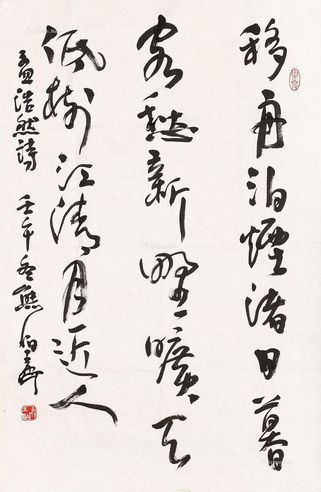 移舟泊煙渚日暮
客愁新野曠天
低樹江清月近人
孟浩然詩 壬午冬熊伯齊